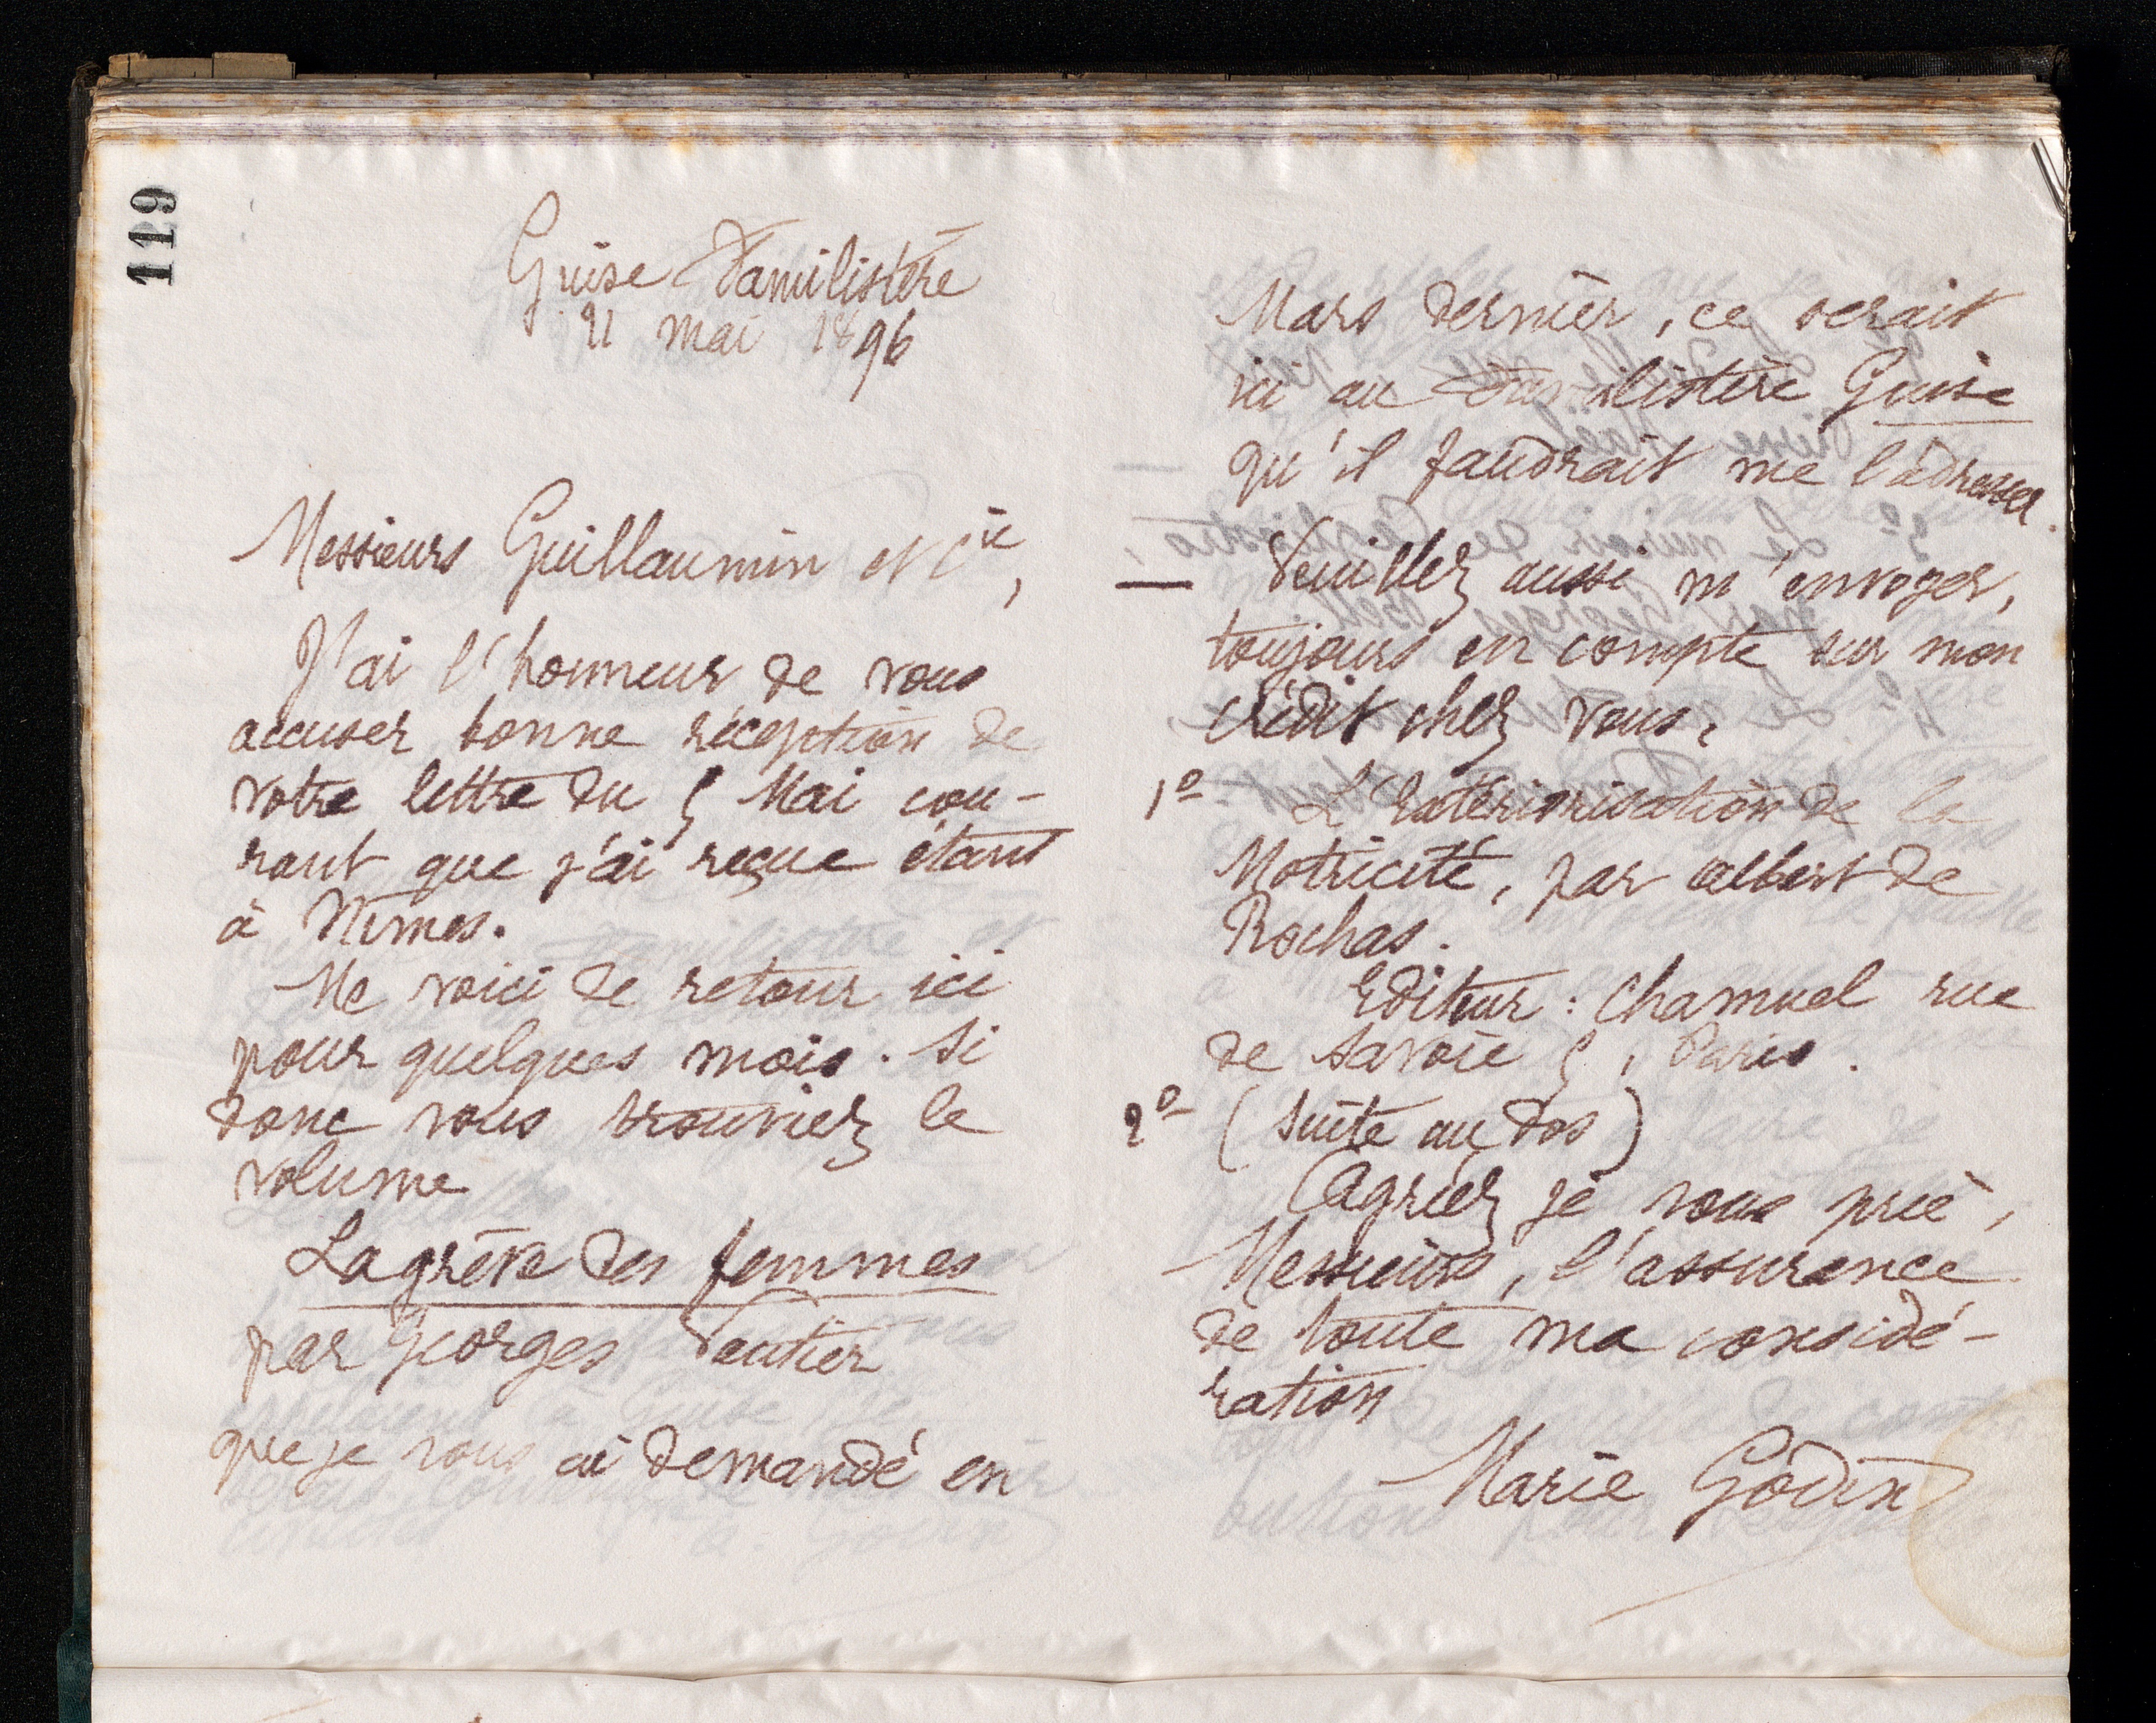 119
Guise Familistère
21 mai 1896
Messieurs Guillaumin et Cie,
J'ai l'honneur de vous
accuser bonne réception de
votre lettre du 5 Mai cou-
rant que j'ai reçue étant
à Nîmes.
Me voici de retour ici
pour quelques mois. Si
donc vous trouviez le
volume
La grève des femmes
par Georges Vautier
que je vous ai demandé en
Mars dernier, ce serait
ici au Familistère Guise
qu'il faudrait me l'adresser.
— Veuillez aussi m'envoyer,
toujours en compte sur mon
crédit chez vous,
1º L'Extériorisation de la
Motricité, par Albert de
Rochas.
Editeur : Chamuel rue
de Savoie 5, Paris.
2º (Suite au dos)
Agréez je vous prie,
Messieurs, l'assurance
de toute ma considé-
ration
Marie Godin